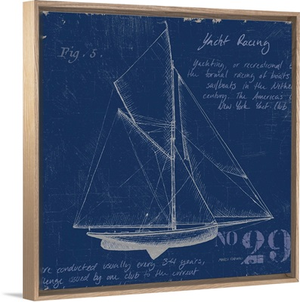 Fig. 5.
Yacht Racing
Yachting, or recreational
the formal racing of boats
sailboats in the Nethe
century. The America's
New York Yacht Club
NO 29
re conducted usually every 3-4 years,
enge issued by one club to the current